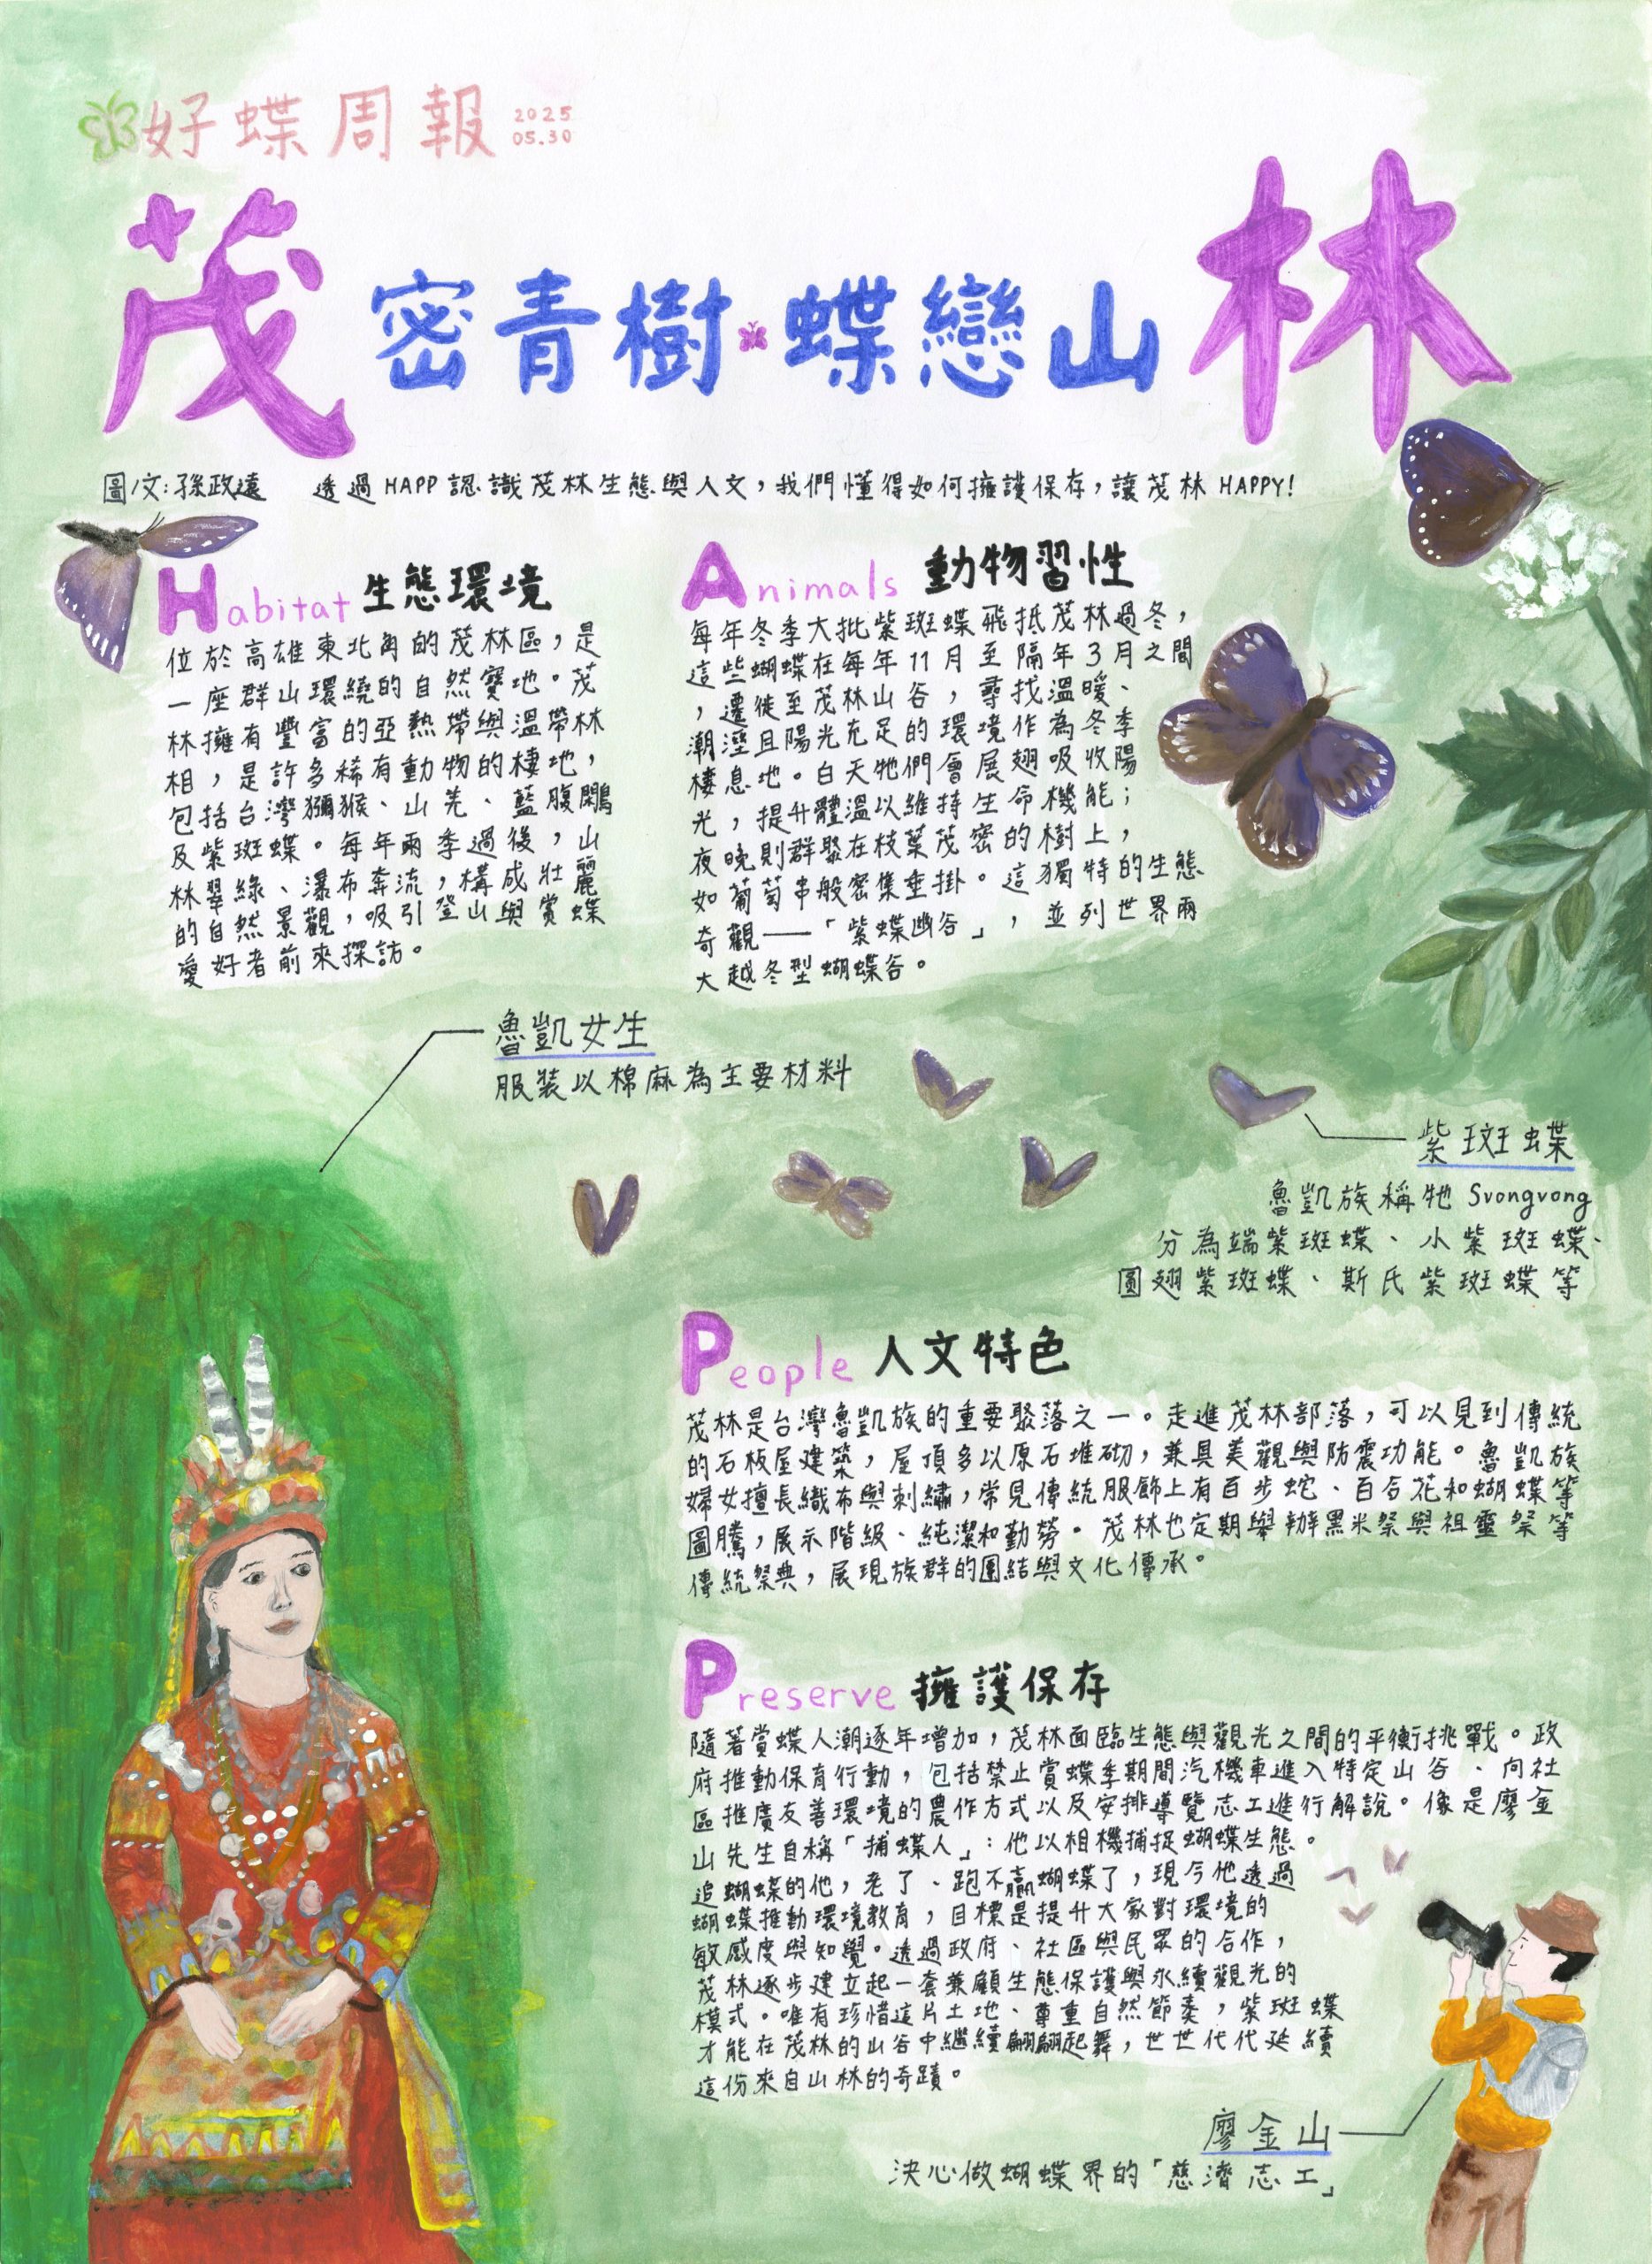 好蝶周報 2025
05.30
茂密青樹 蝶戀山林
圖/文:孫政遠 透過HAPP認識茂林生態與人文,我們懂得如何擁護保存,讓茂林HAPPY!
Habitat 生態環境
位於高雄東北角的茂林區,是
一座群山環繞的自然寶地。茂
林擁有豐富的亞熱帶與溫帶林
相,是許多稀有動物的棲地,
包括台灣獼猴、山羌、藍腹鷳
及紫斑蝶。每年雨季過後,山
林翠綠、瀑布奔流,構成壯麗
的自然景觀,吸引登山與賞蝶
愛好者前來探訪。
Animals 動物習性
每年冬季大批紫斑蝶飛抵茂林過冬,
這些蝴蝶在每年11月至隔年3月之間
,遷徙至茂林山谷,尋找溫暖、
潮溼且陽光充足的環境作為冬季
棲息地。白天牠們會展翅吸收陽
光,提升體溫以維持生命機能;
夜晚則群聚在枝葉茂密的樹上,
如葡萄串般密集垂掛。這獨特的生態
奇觀——「紫蝶幽谷」,並列世界兩
大越冬型蝴蝶谷。
魯凱女生
服裝以棉麻為主要材料
紫斑蝶
魯凱族稱牠 Svongvong
分為端紫斑蝶、小紫斑蝶、
圓翅紫斑蝶、斯氏紫斑蝶等
People 人文特色
茂林是台灣魯凱族的重要聚落之一。走進茂林部落,可以見到傳統
的石板屋建築,屋頂多以原石堆砌,兼具美觀與防震功能。魯凱族
婦女擅長織布與刺繡,常見傳統服飾上有百步蛇、百合花和蝴蝶等
圖騰,展示階級、純潔和勤勞。茂林也定期舉辦黑米祭與祖靈祭等
傳統祭典,展現族群的團結與文化傳承。
Preserve 擁護保存
隨著賞蝶人潮逐年增加,茂林面臨生態與觀光之間的平衡挑戰。政
府推動保育行動,包括禁止賞蝶季期間汽機車進入特定山谷、向社
區推廣友善環境的農作方式以及安排導覽志工進行解說。像是廖金
山先生自稱「捕蝶人」:他以相機捕捉蝴蝶生態。
追蝴蝶的他,老了、跑不贏蝴蝶了,現今他透過
蝴蝶推動環境教育,目標是提升大家對環境的
敏感度與知覺。透過政府、社區與民眾的合作,
茂林逐步建立起一套兼顧生態保護與永續觀光的
模式。唯有珍惜這片土地、尊重自然節奏,紫斑蝶
才能在茂林的山谷中繼續翩翩起舞,世世代代延續
這份來自山林的奇蹟。
廖金山
決心做蝴蝶界的「慈濟志工」